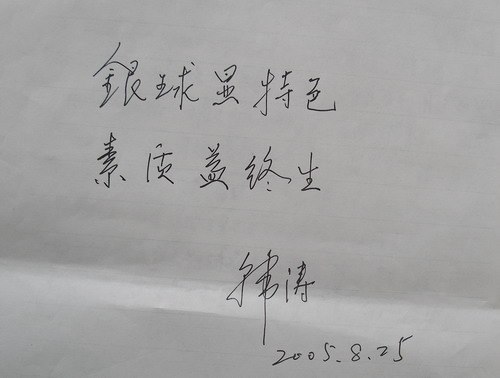 銀球显特色
素质益终生
韩涛
2005.8.25